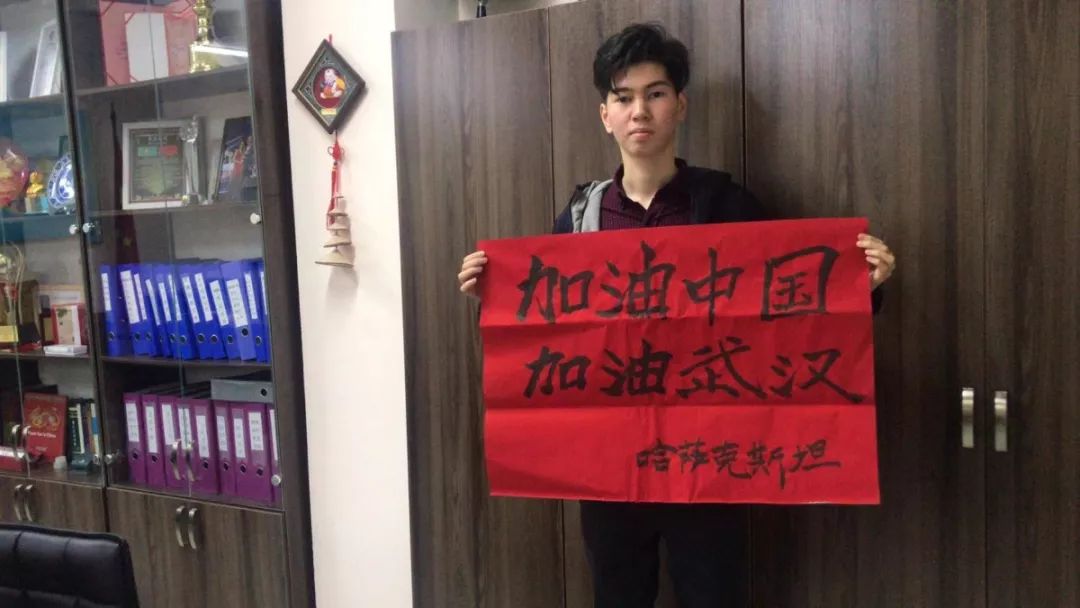 加油中国
加油武汉
哈萨克斯坦